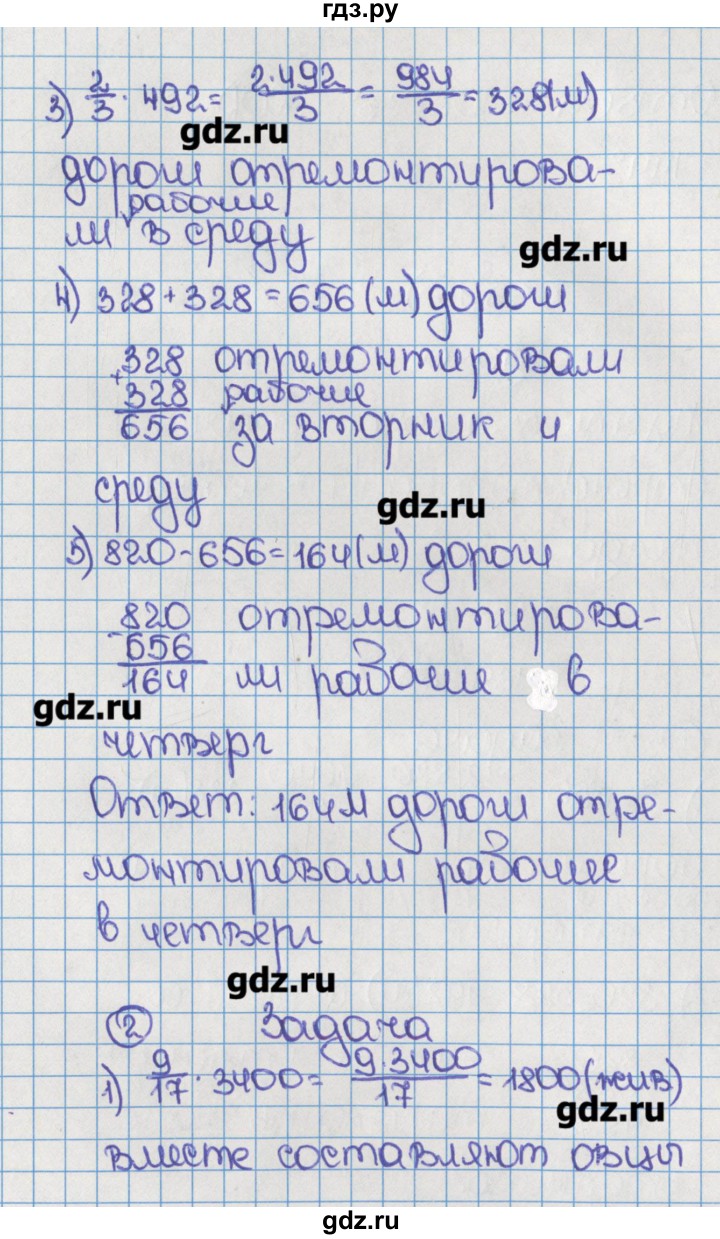 гдз.ру
3) 2/3 · 492 = 2·492/3 = 984/3 = 328(м)
gdz.ru
дороги отремонтирова-
рабочие
ли в среду
gdz.ru
4) 328 + 328 = 656 (м) дороги
328 отремонтировали
+328 рабочие
656 за вторник и
среду
gdz.ru
5) 820 - 656 = 164(м) дороги
820 отремонтирова-
-656
164 ли рабочие в
gdz.ru
четверг
Ответ: 164м дороги отре-
монтировали рабочие
в четверг
gdz.ru
2 Задача
1) 9/17 · 3400 = 9·3400/17 = 1800 (жив)
gdz.ru
вместе составляют овцы
gdz.ru